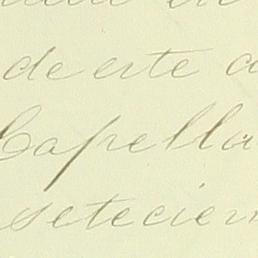 de este
Capella
setecien